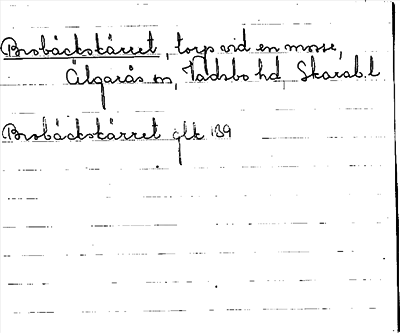 Brobäckskärret, torp vid en mosse,
Älgarås sn, Vadsbo hd, Skarab.l
Brobäckskärret glk 139